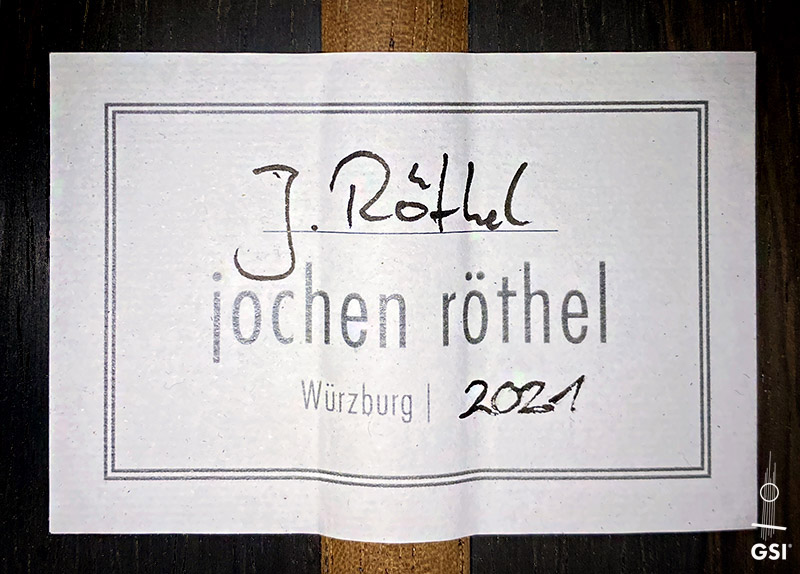 J. Röthel
jochen röthel
Würzburg | 2021
GSI®